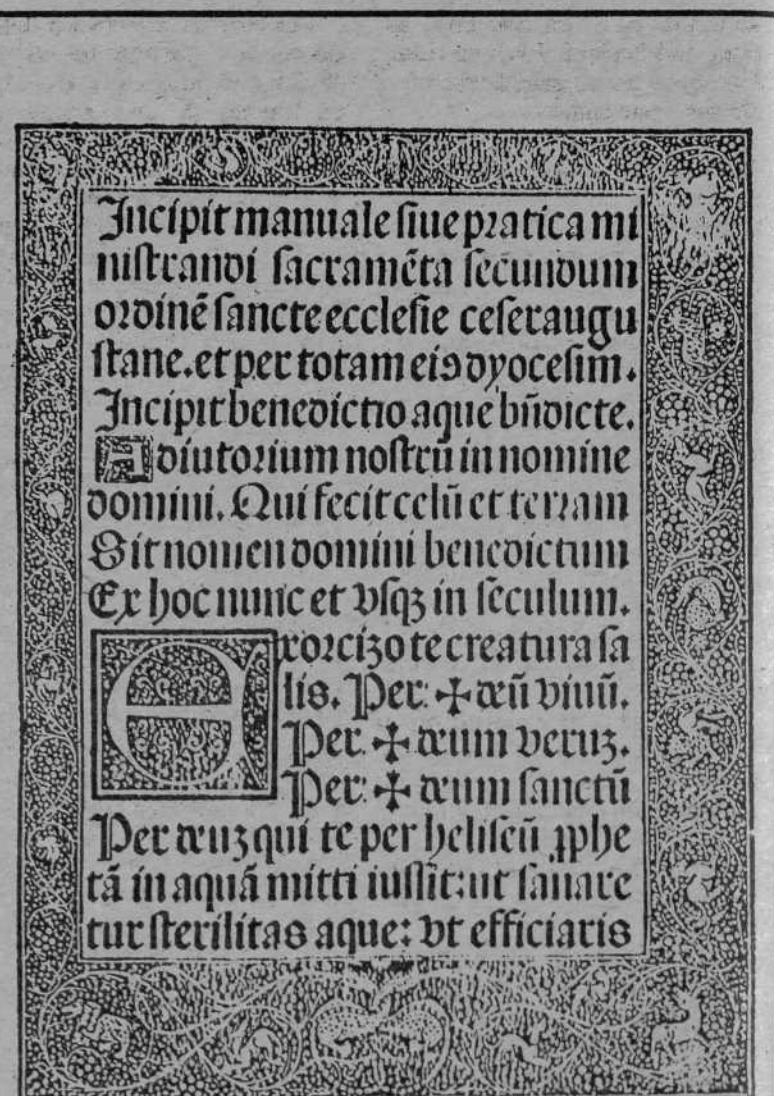 Incipit manuale siue pratica mi
nistrandi sacramēta secundum
ordinē sancte ecclesie ceseraugu
stane. et per totam eiꝰ dyocesim.
Incipit benedictio aque bn̄dicte.
Adiutorium nostrū in nomine
domini. Qui fecit celū et terram
Sit nomen domini benedictum
Ex hoc nunc et vsqꝫ in seculum.
Exorcizo te creatura sa
lis. Per: ✠ deū viuū.
Per. ✠ deum veruꝫ.
Per: ✠ deum sanctū
Per deuꝫ qui te per heliseū ꝓphe
tā in aquā mitti iussit: ut sanare
tur sterilitas aque: vt efficiaris